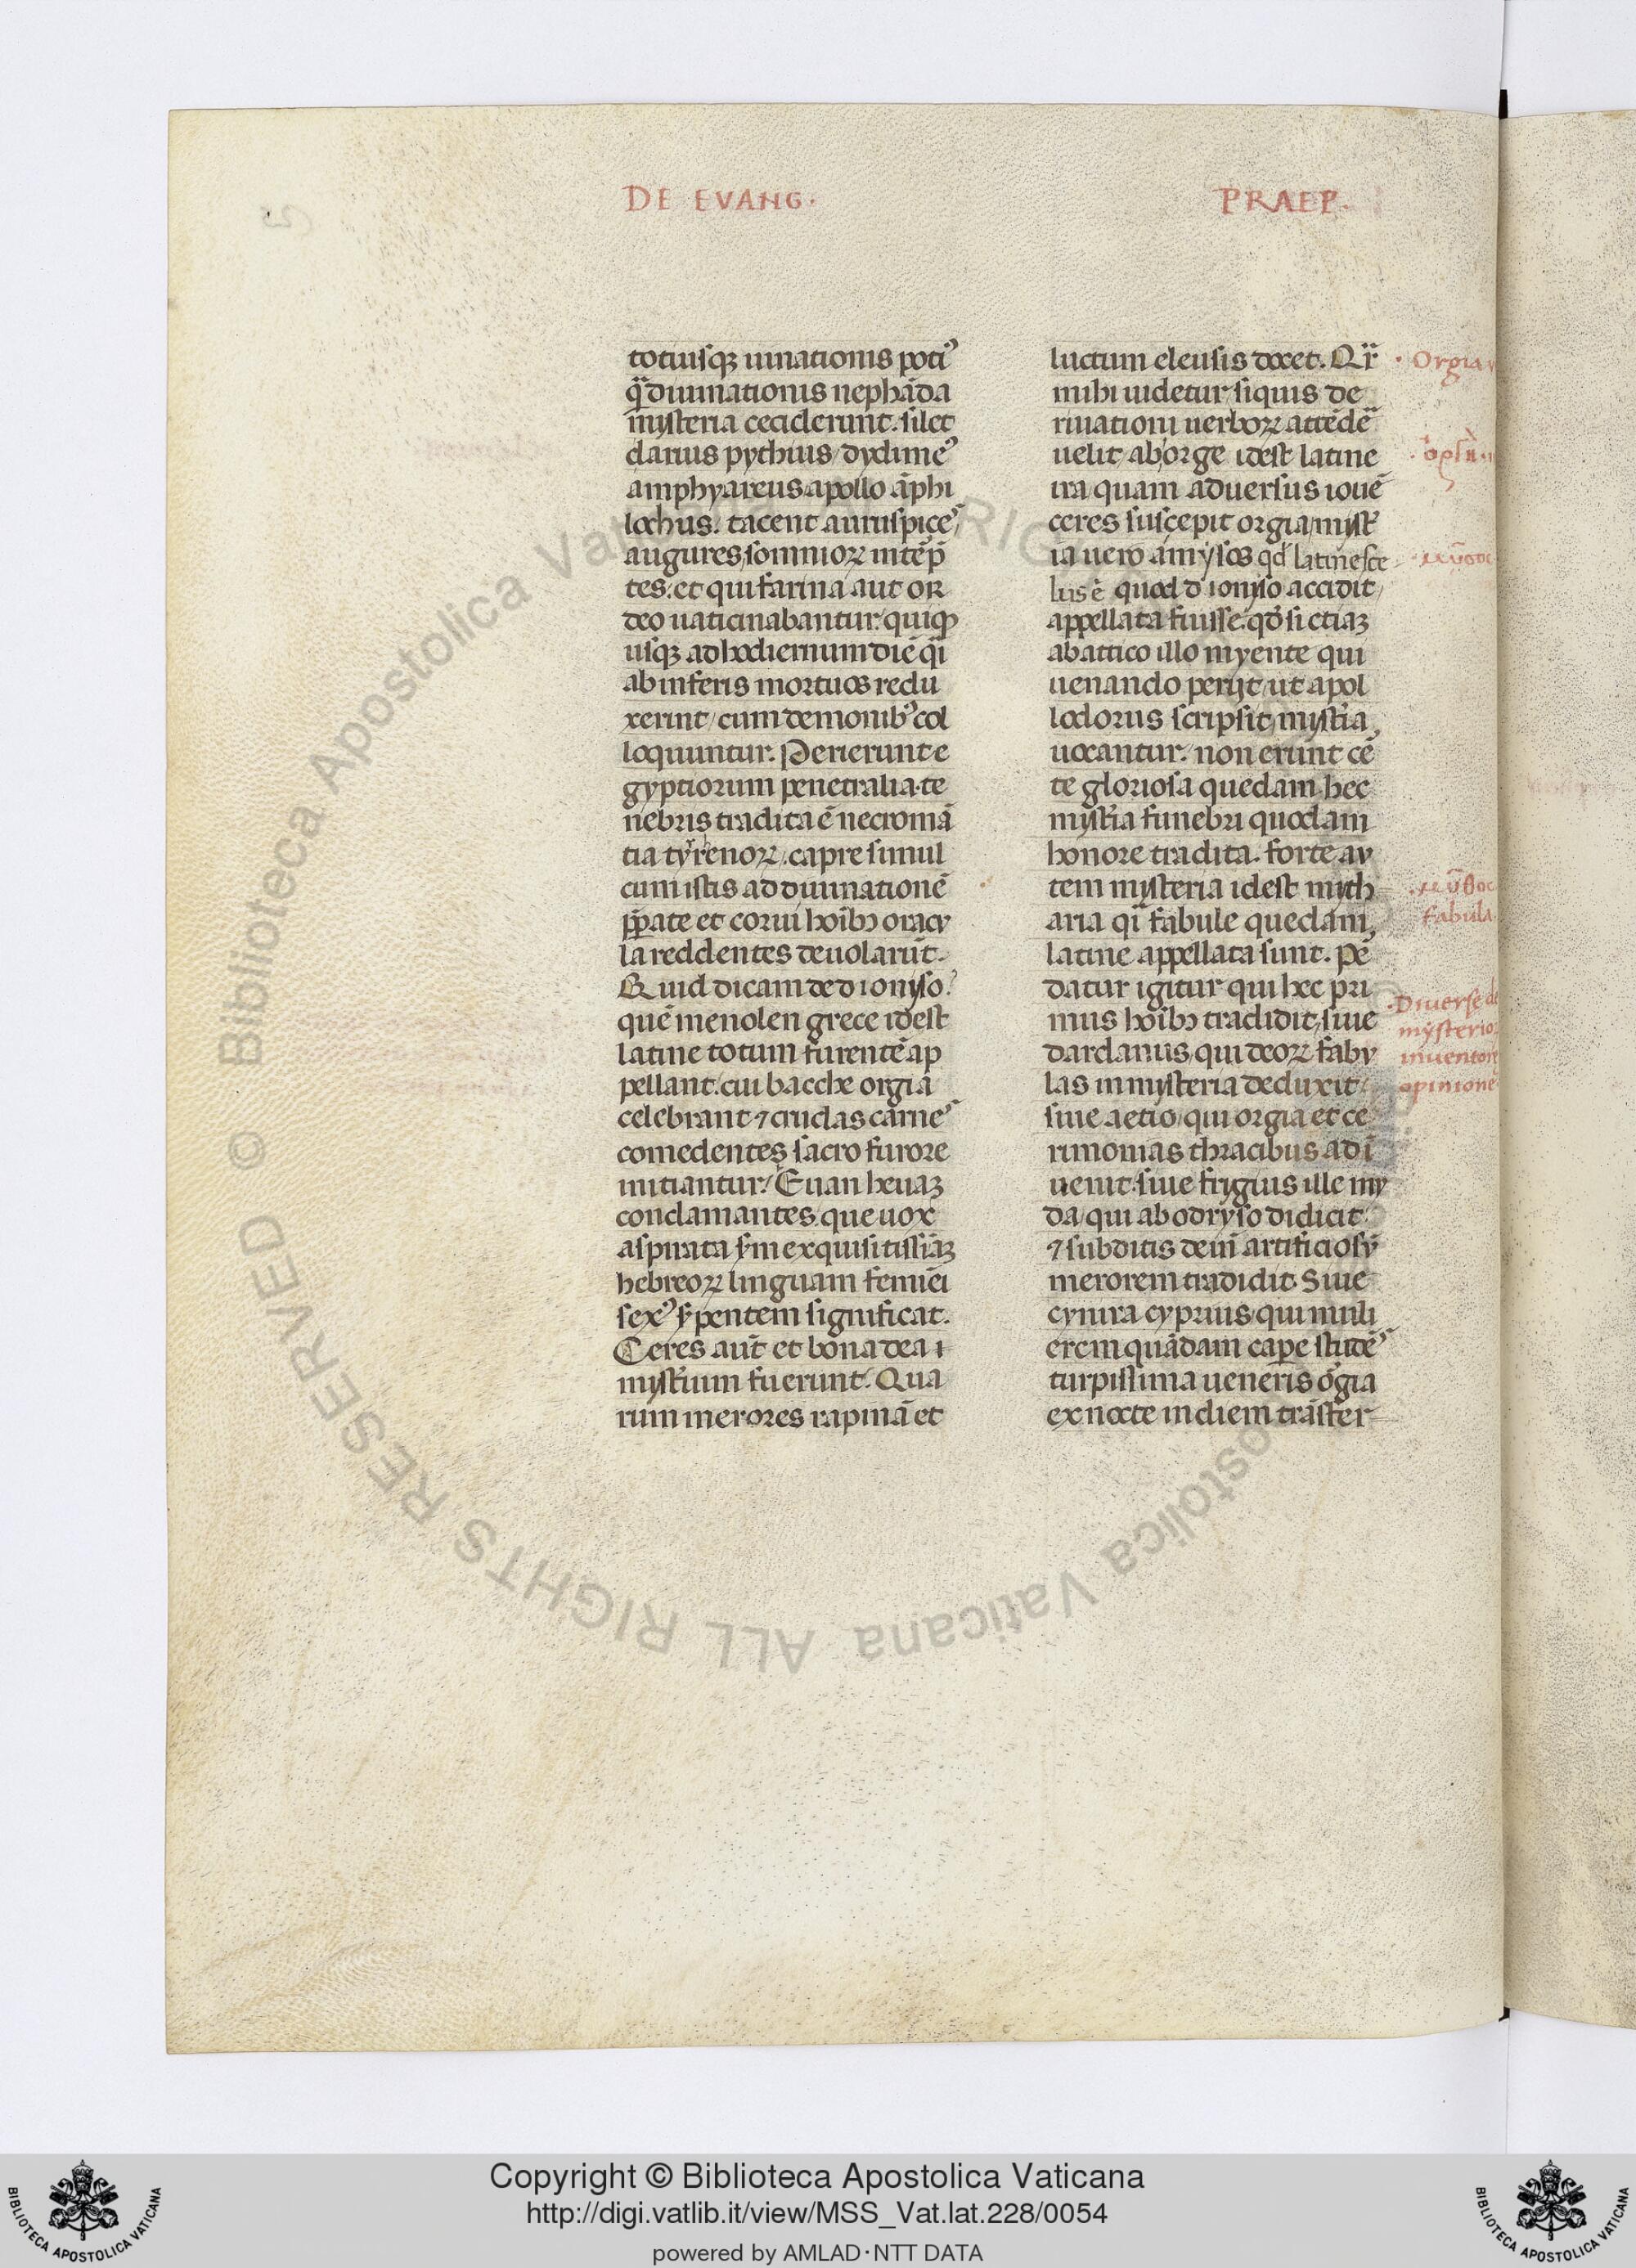 DE EVANG.
PRAEP.
totiusq; uinationis poti᾽
q̃ diuinationis nephãda
mysteria ceciderunt. silet
clarius pythius dydime᾽
amphyareus apollo ãphi
lochus. tacent auruspice᾽
augures somnioꝝ intẽp̃
tes. et qui farina aut or
deo uaticinabantur. quiq;
usq; ad hodiernum diẽ q̃i
ab inferis mortuos redu
xerint cum demonib᾽ col
loquuntur. Perierunt e
gyptiorum penetralia. te
nebris tradita ẽ necromã
tia tyrenoꝝ. capre simul
cum istis ad diuinationẽ
p̃pate et corui hoĩbꝫ oracu
la reddentes deuolarũt.
Quid dicam de dioniso?
quẽ menolen grece idest
latine totum furentẽ ap
pellant. cui bacche orgia
celebrant ⁊ crudas carne᾽
comedentes sacro furore
initiantur. Euan heuaꝫ
conclamantes. que uox
aspirata s̃m exquisitissĩaꝫ
hebreoꝝ linguam feminei
sex᾽ s̃pentem significat.
Ceres aũt et bona dea ı
myst̃ium fuerunt. Qua
rum merores rapinã et
luctum eleusis docet. Qr̃
mihi uidetur siquis de
riuationi uerboꝝ attẽdẽ
uelit ab orge idest latine
ira quam aduersus iouẽ
ceres suscepit orgia, mist̃
ia uero a mysos qđ latine sce
lus ẽ quod dioniso accidit
appellata fuisse. qđ si etiaꝫ
ab attico illo myente qui
uenando perijt ut apol
lodorus scripsit myst̃ia
uocantur. non erunt cẽ
te gloriosa quedam hec
myst̃ia funebri quodam
honore tradita. forte au
tem mysteria idest myth
aria q̃i fabule quedam
latine appellata sunt. pẽ
datur igitur qui hec pri
mus hoĩbꝫ tradidit, siue
dardanus, qui deoꝝ fabu
las in mysteria deduxit
siue aetio, qui orgia et ce
rimonias thracibus ad ĩ
uenit. siue frigius ille my
da, qui ab odryso didicit
⁊ subditis dein artificiosũ
merorem tradidit. Siue
cynira cyprius, qui muli
erem quãdam cap̱e studẽ᾽
turpissima ueneris orgia
ex nocte in diem trãsfer
· Orgia
· μῦσος
· μῦθος
fabula
· Diuerse de
mysterio
inuentor
opinione
Copyright © Biblioteca Apostolica Vaticana
http://digi.vatlib.it/view/MSS_Vat.lat.228/0054
powered by AMLAD·NTT DATA
BIBLIOTECA APOSTOLICA VATICANA
BIBLIOTECA APOSTOLICA VATICANA
© Biblioteca Apostolica Vaticana ALL RIGHTS RESERVED